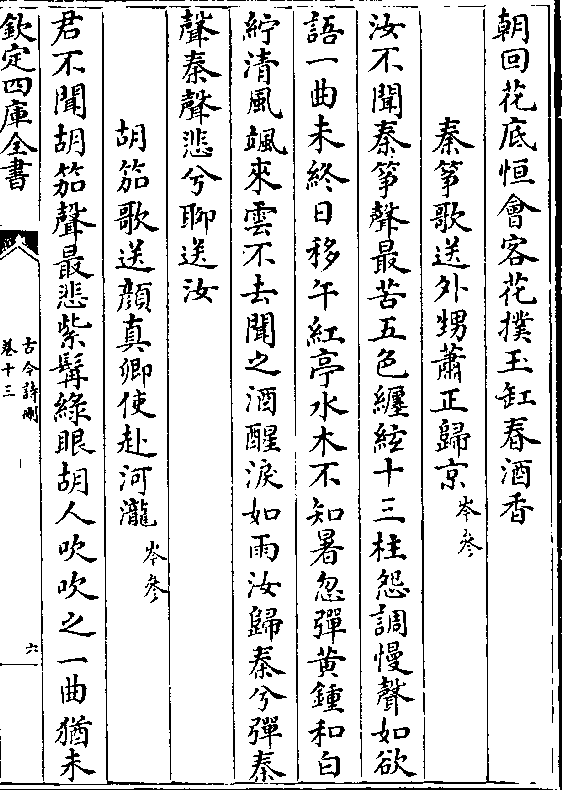 朝回花底恒會客花撲玉缸春酒香
秦箏歌送外甥蕭正歸京
岑參
汝不聞秦箏聲最苦五色纏絃十三柱怨調慢聲如欲
語一曲未終日移午紅亭水木不知暑忽彈黃鍾和白
紵清風颯來雲不去聞之酒醒淚如雨汝歸秦兮彈秦
聲秦聲悲兮聊送汝
胡笳歌送顔真卿使赴河瀧
岑參
君不聞胡笳聲最悲紫髯綠眼胡人吹吹之一曲猶未
欽定四庫全書
古今詩刪
卷十三
六